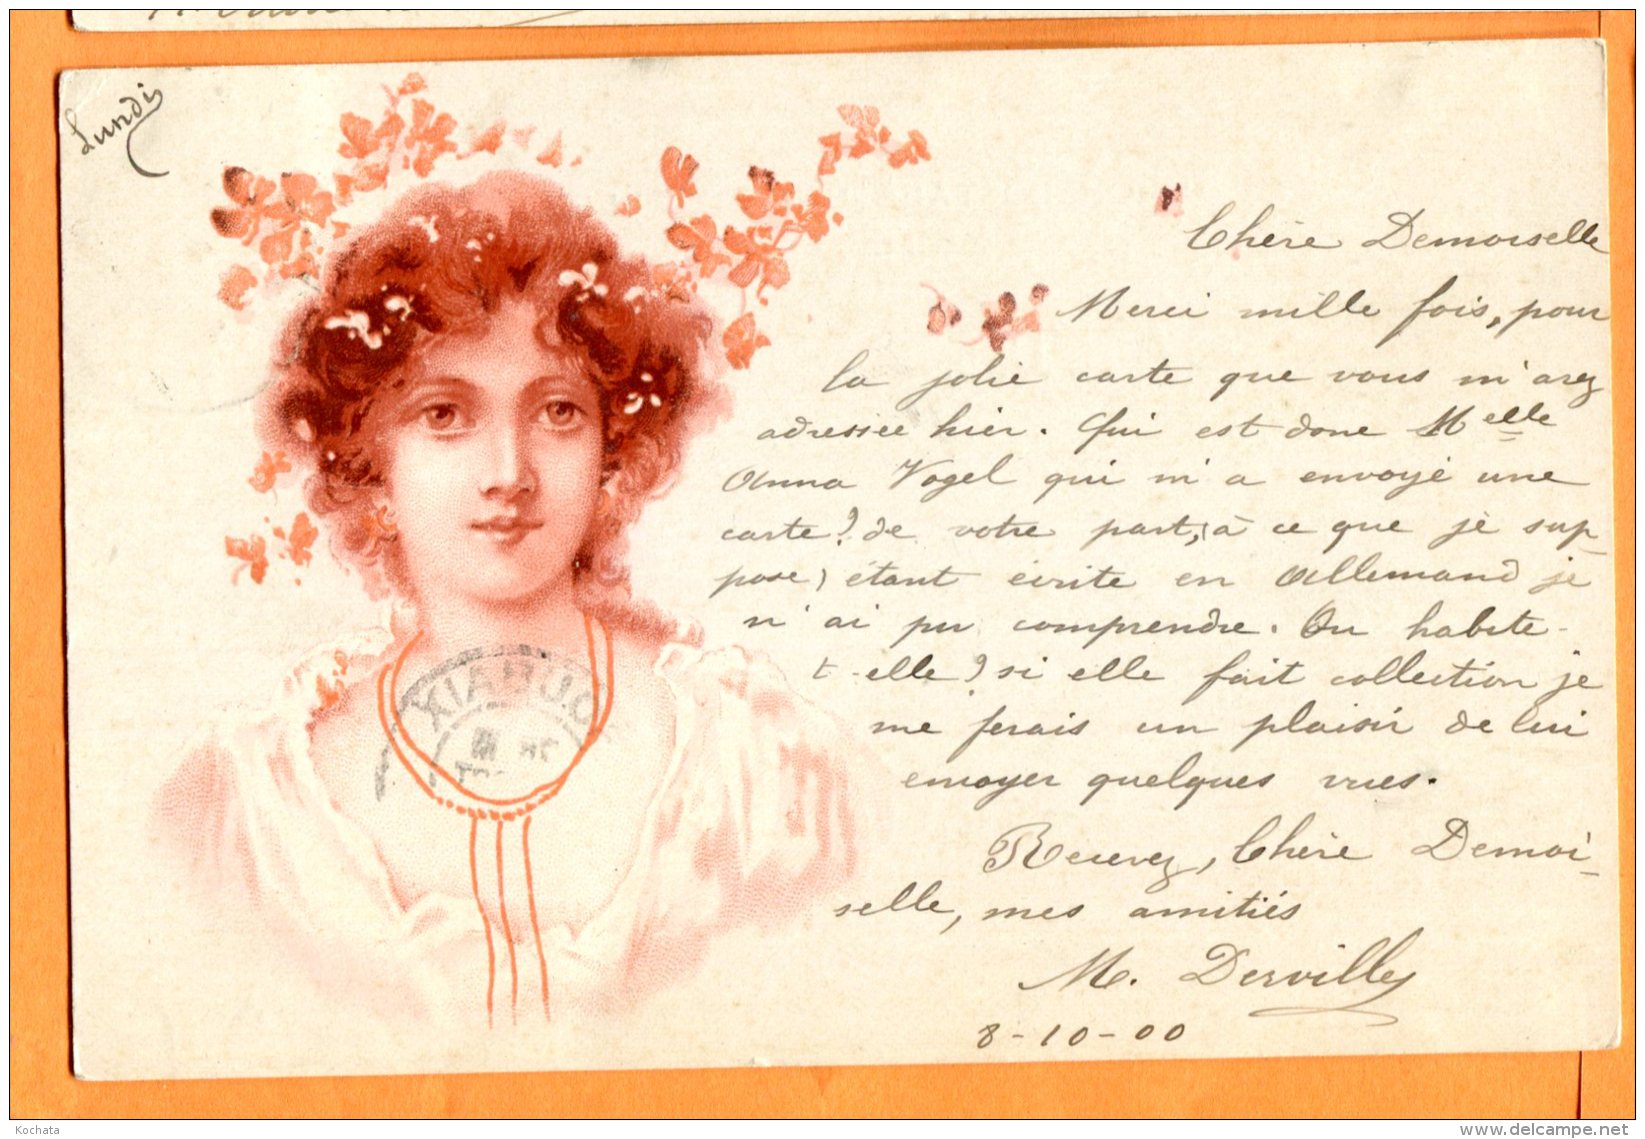 Lundi
Chère Demoiselle
Merci mille fois, pour
la jolie carte que vous m'avez
adressée hier. Qui est donc Melle
Anna Vogel qui m'a envoyé une
carte? de votre part, (à ce que je sup-
pose) étant écrite en Allemand je
n'ai pu comprendre. Ou habite-
t-elle? si elle fait collection je
me ferais un plaisir de lui
envoyer quelques vues.
Recevez, Chère Demoi-
selle, mes amitiés
M. Dervilly
8-10-00
Kochata
www.delcampe.net